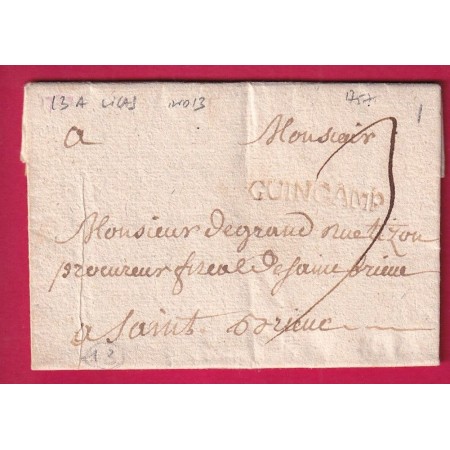 13 A 1757
a Monsieur
GUINGAMP
Monsieur degrand
procureur fiscal de saint brieuc
a saint brieuc